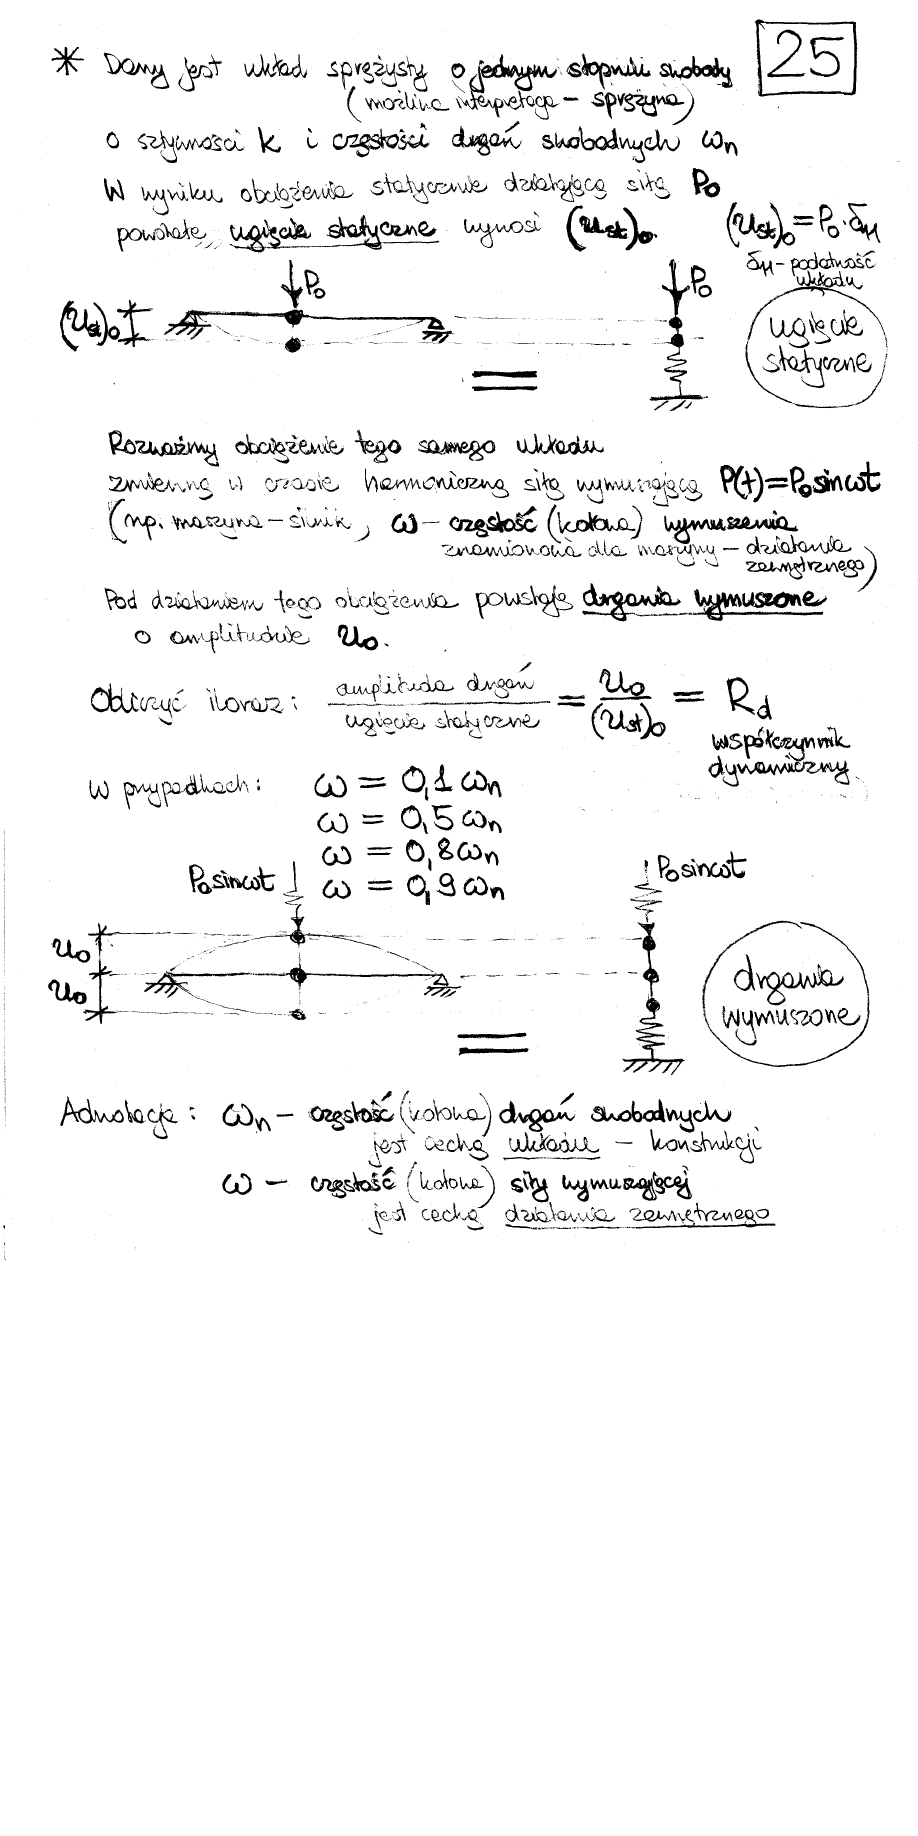 25
* Dany jest układ sprężysty o jednym stopniu swobody
(możliwa interpretacja - sprężyna)
o sztywności k i częstości drgań swobodnych ωn
W wyniku obciążenia statycznie działającą siłą P0
powstałe ugięcie statyczne wynosi (ust)0.
(ust)0 = P0·δ11
δ11 - podatność
układu
P0
P0
(ust)0
ugięcie
statyczne
=
Rozważmy obciążenie tego samego układu
zmienną w czasie harmoniczną siłą wymuszającą P(t)=P0sinωt
(np. maszyna - silnik, ω - częstość (kołowa) wymuszenia
znamionowa dla maszyny - działania
zewnętrznego)
Pod działaniem tego obciążenia powstają drgania wymuszone
o amplitudzie u0.
Obliczyć iloraz: amplituda drgań / ugięcie statyczne = u0 / (ust)0 = Rd
współczynnik
dynamiczny
W przypadkach: ω = 0,1 ωn
ω = 0,5 ωn
ω = 0,8 ωn
ω = 0,9 ωn
P0 sinωt
P0 sinωt
u0
u0
drgania
wymuszone
=
Adnotacja: ωn - częstość (kołowa) drgań swobodnych
jest cechą układu - konstrukcji
ω - częstość (kołowa) siły wymuszającej
jest cechą działania zewnętrznego